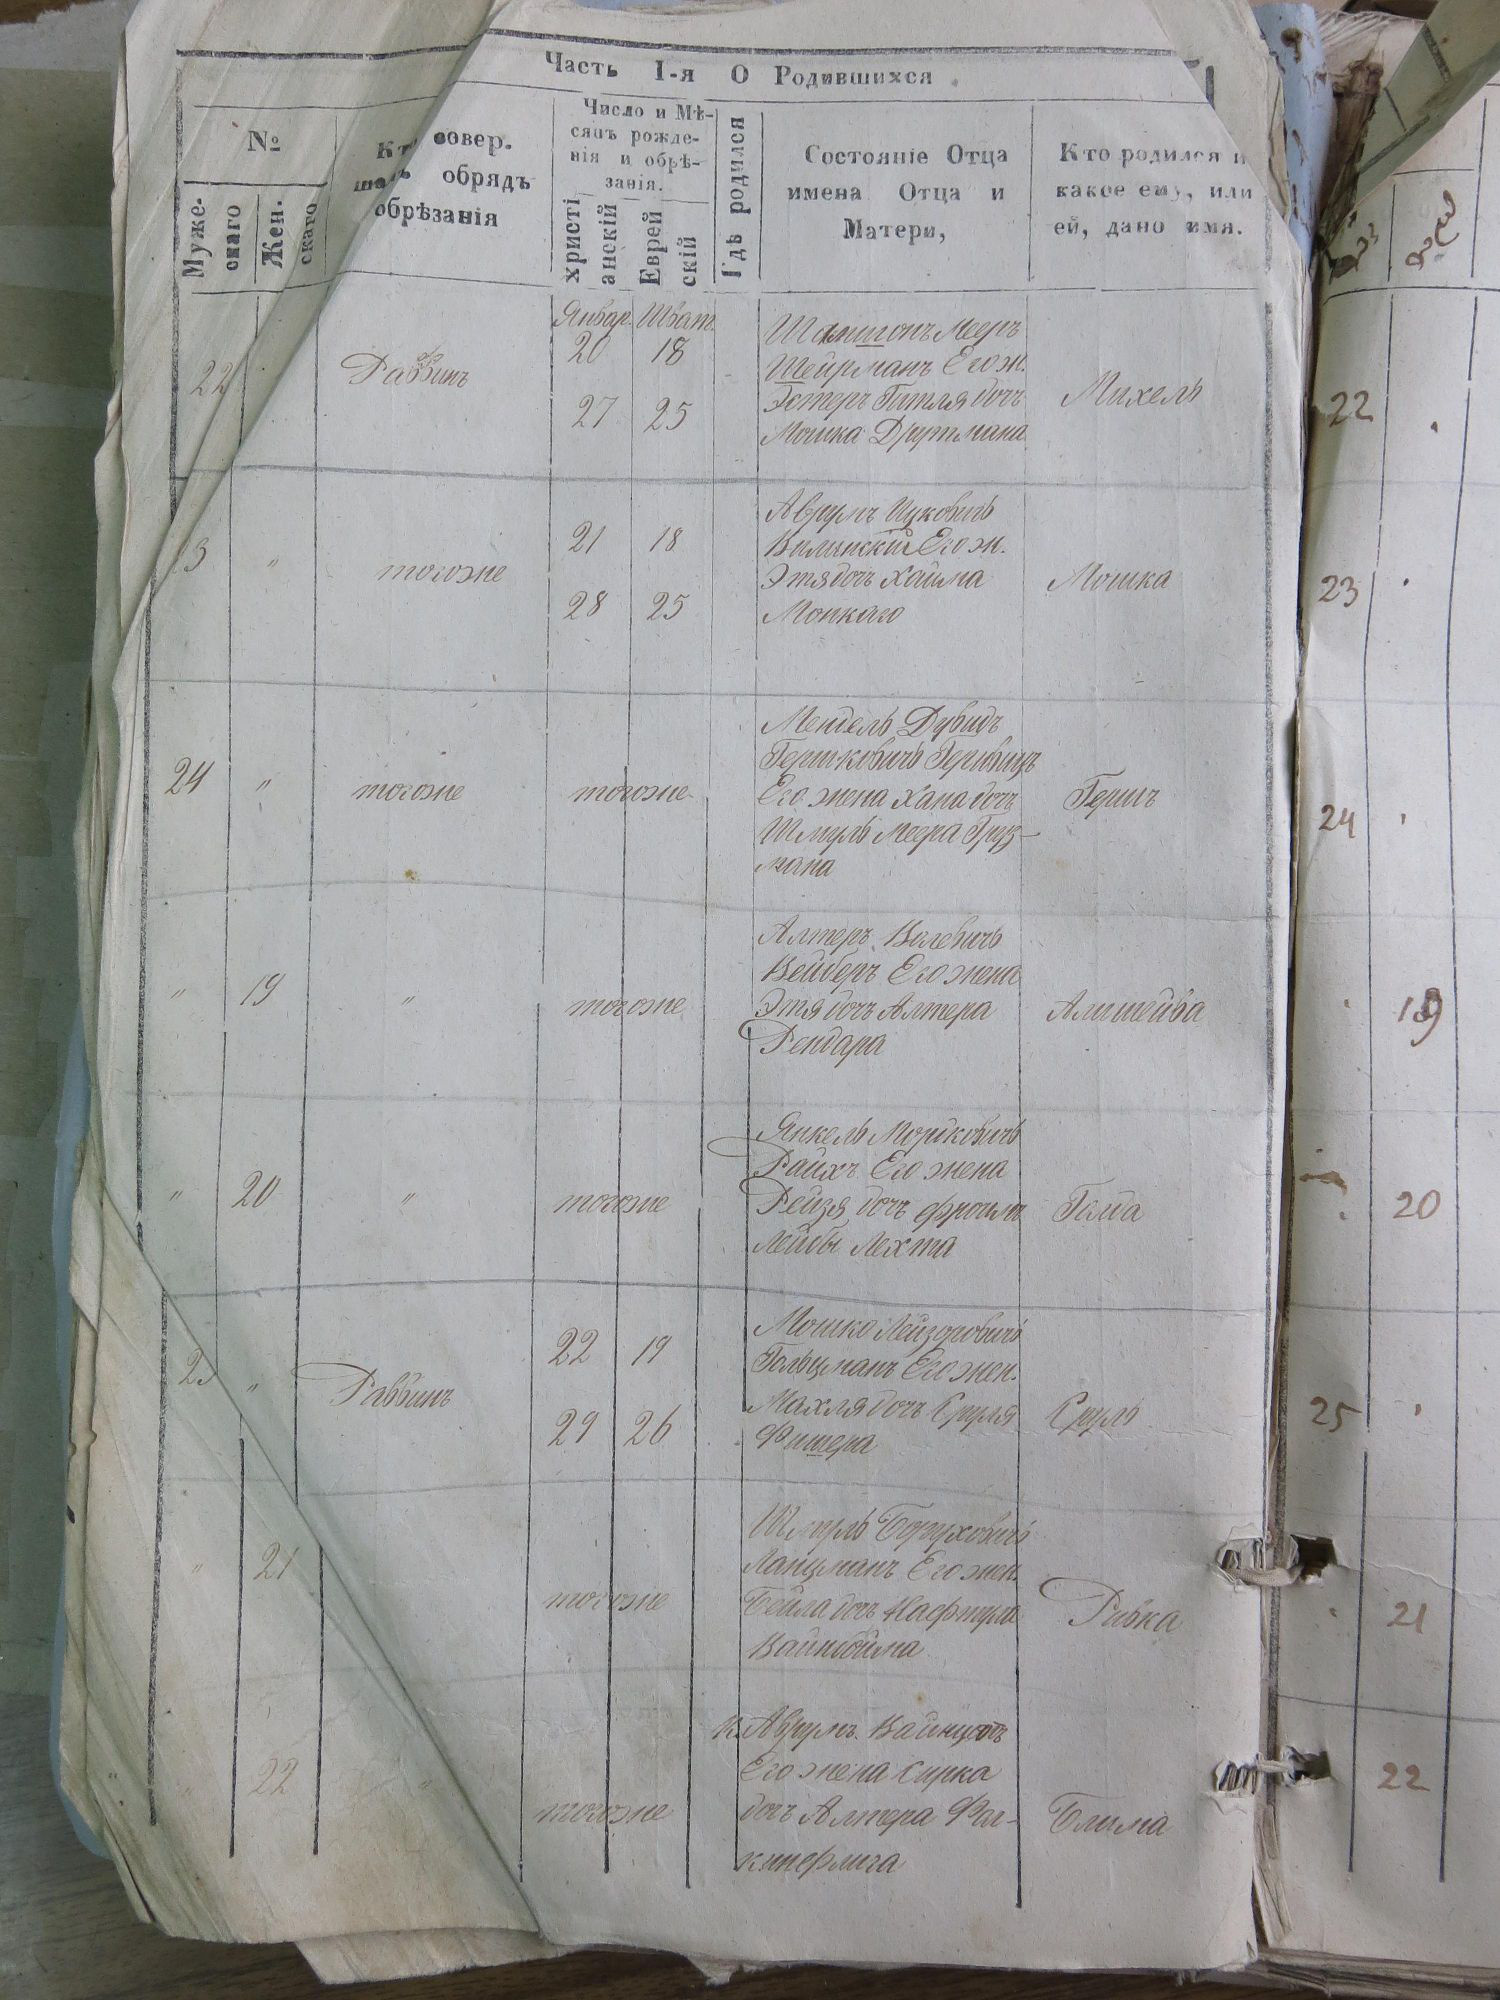 Часть I-я О Родившихся
№
Муже-
скаго
Жен.
скаго
Кто совер-
шалъ обрядъ
обрѣзанія
Число и Мѣ-
сяцъ рожде-
нія и обрѣ-
занія.
христі
анскій
Еврей
скій
Гдѣ родился
Состояніе Отца
имена Отца и
Матери,
Кто родился и
какое ему, или
ей, дано имя.
Январ. Шват.
22 Раввинъ
20 18
27 25
Шамшонъ Мееръ
Шейрманъ Его ж.
Эстеръ Гитля дочь
Мошка Друтмана
Михель
22
3 " тогоже
21 18
28 25
Аврумъ Ицковичъ
Вилинскій Его ж.
Этя дочь Хаима
Монкаго
Мошка
23
24 " тогоже тогоже
Мендель Дувидъ
Гершковичъ Гервицъ
Его жена Хана дочь
Шмуль Меера Груз-
мана
Гершъ
24
" 19 " тогоже
Алтеръ Волевичъ
Вейберъ Его жена
Этя дочь Алтера
Рендара
Алишейва
19
" 20 " тогоже
Янкель Мортковичъ
Райхъ Его жена
Рейзя дочь Фроима
Лейбы Лехта
Голда
20
25 " Раввинъ
22 19
29 26
Мошко Лейзоровичъ
Гольцманъ Его жен.
Махля дочь Сруля
Фишера
Сруль
25
" 21 тогоже
Шмуль Боруховичъ
Ланцманъ Его жен.
Бейла дочь Нафтула
Вайнбойма
Ривка
21
" 22 " тогоже
Аврумъ Вайнцовъ
Его жена Сирка
дочь Алтера Фай-
кинфлича
Блима
22